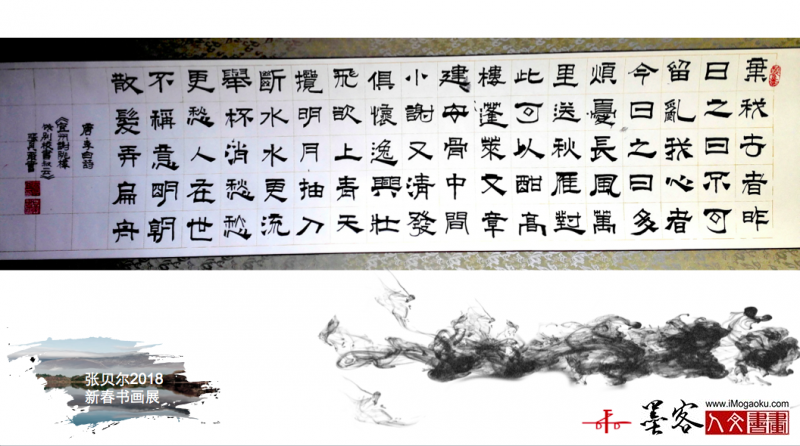 棄我去者昨
日之日不可
留亂我心者
今日之日多
煩憂長風萬
里送秋雁對
此可以酣高
樓蓬萊文章
建安骨中間
小謝又清發
俱懷逸興壯
飛欲上青天
攬明月抽刀
斷水水更流
舉杯消愁愁
更愁人在世
不稱意明朝
散髮弄扁舟
唐李白詩
《宣州謝朓樓
餞別校書叔雲》
張貝爾書
张贝尔2018
新春书画展
墨客
www.iMogaoku.com
人文書畫